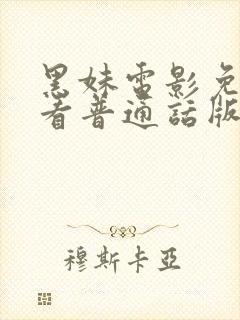 黑妹電影免
看普通話版
穆斯卡亞